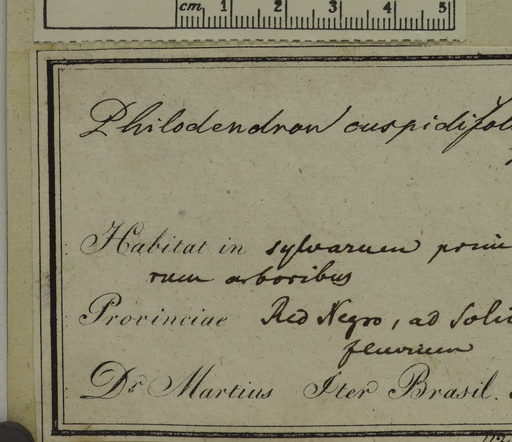 cm 1 2 3 4 5
Philodendron cuspidifol
Habitat in sylvarum prim
rum arboribus
Provinciae Rio Negro, ad Soli
fluvium
Dr. Martius Iter Brasil.